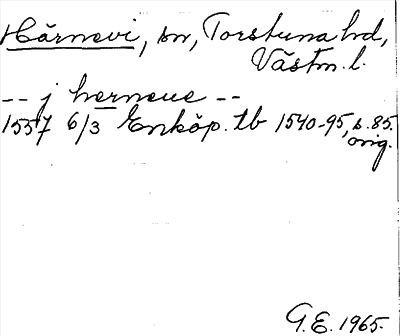 Härnevi, sn, Torstuna hd,
Västm. l.
-- j herneue --
1557 6/3 Enköp. tb 1540-95, s. 85.
orig.
G.E. 1965.